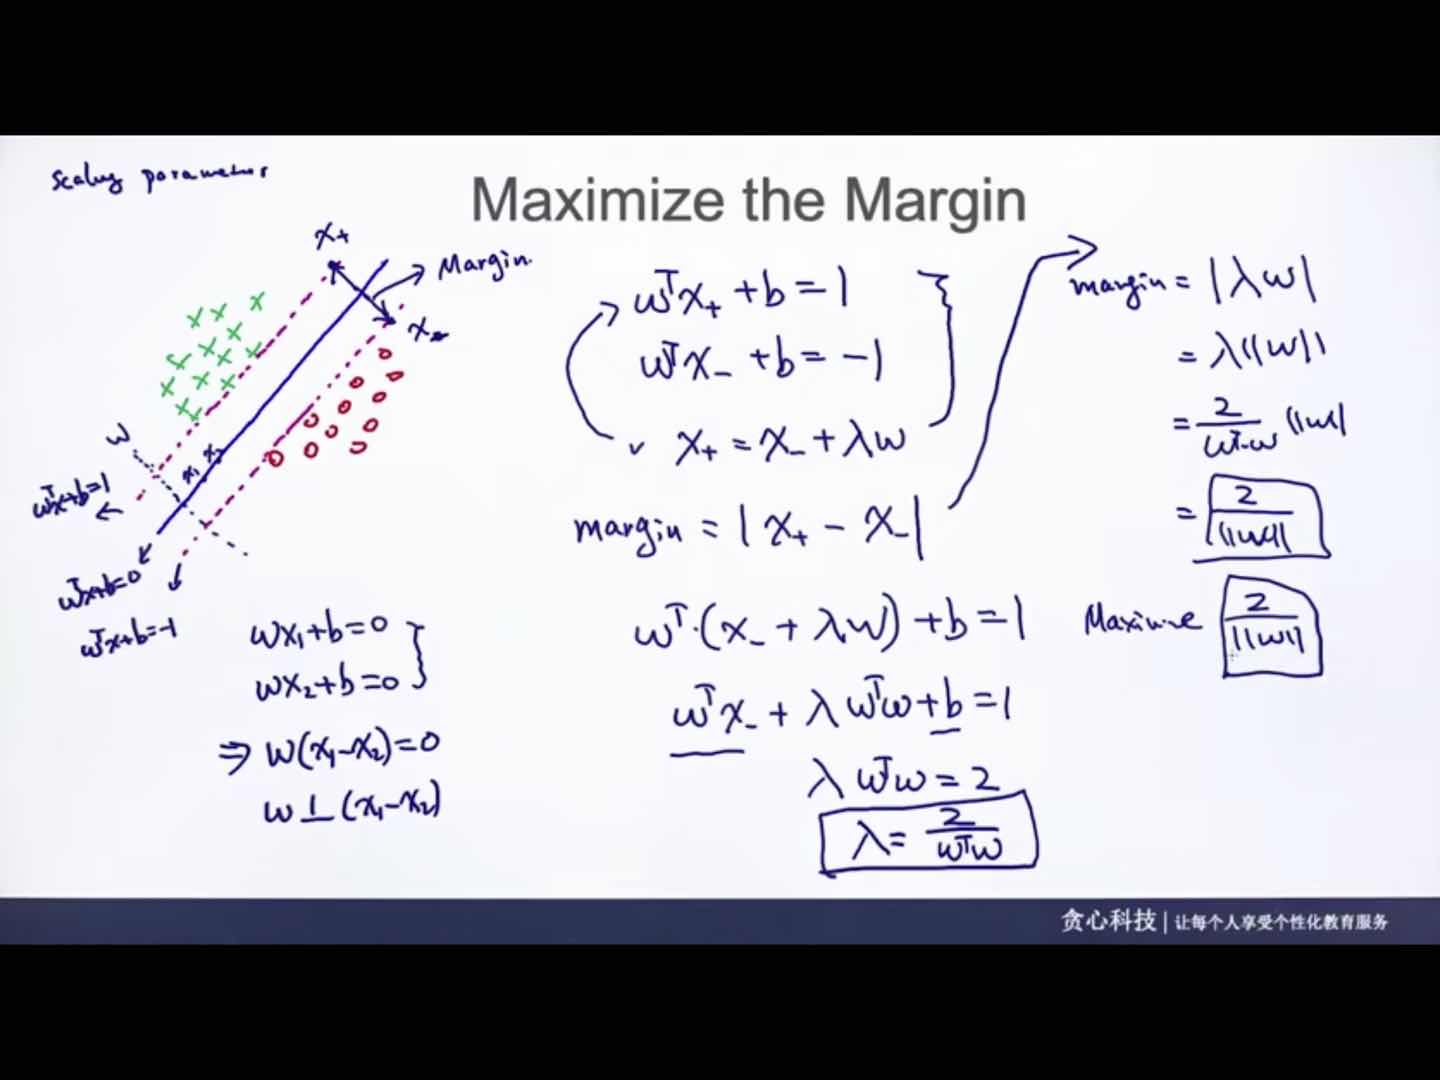 Scaling parameters
Maximize the Margin
x₊
Margin
x₋
w
x₁ x₂
wᵀx+b=1
wᵀx+b=0
wᵀx+b=-1
wx₁+b=0
wx₂+b=0
⇒ w(x₁-x₂)=0
w⊥(x₁-x₂)
wᵀx₊+b=1
wᵀx₋+b=-1
x₊=x₋+λw
margin=|x₊-x₋|
wᵀ·(x₋+λw)+b=1
wᵀx₋+λwᵀw+b=1
λwᵀw=2
λ=2/wᵀw
margin=|λw|
=λ||w||
=2/wᵀ·w ||w||
=2/||w||
Maximize 2/||w||
贪心科技 | 让每个人享受个性化教育服务